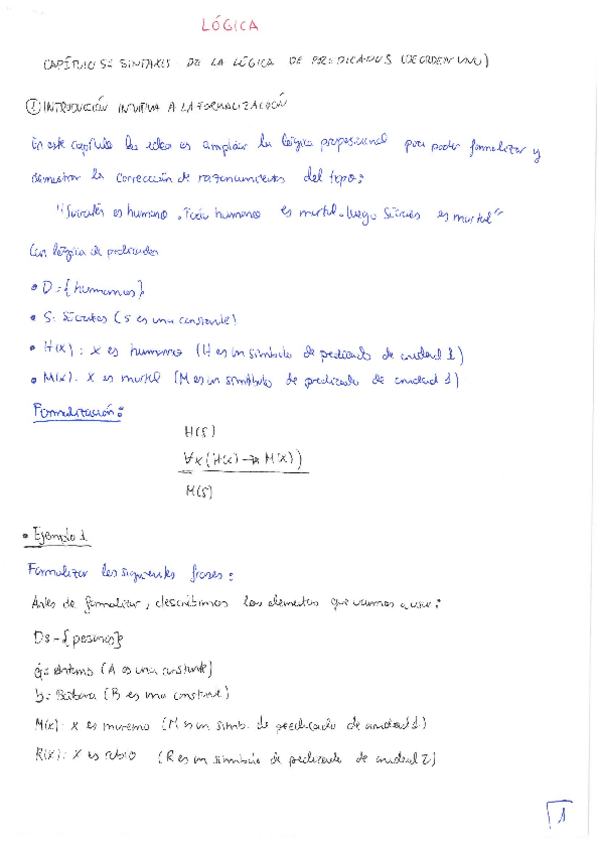 LÓGICA
CAPÍTULO 5: SINTAXIS DE LA LÓGICA DE PREDICADOS (DE ORDEN UNO)
① INTRODUCCIÓN INTUITIVA A LA FORMALIZACIÓN
En este capítulo la idea es ampliar la lógica proposicional para poder formalizar y
demostrar la corrección de razonamientos del tipo:
"Sócrates es humano. Todo humano es mortal. Luego Sócrates es mortal"
Con lógica de predicados
• D = {humanos}
• S: Sócrates (S es una constante)
• H(x): x es humano (H es un símbolo de predicado de aridad 1)
• M(x): x es mortal (M es un símbolo de predicado de aridad 1)
Formalización:
H(S)
∀x(H(x) → M(x))
M(S)
• Ejemplo 1
Formalizar las siguientes frases:
Antes de formalizar, describimos los elementos que vamos a usar:
D = {personas}
a: (A es una constante)
b: Bárbara (B es una constante)
M(x): x es moreno (M es un símb. de predicado de aridad 1)
R(x): x es rubio (R es un símbolo de predicado de aridad 2)
1